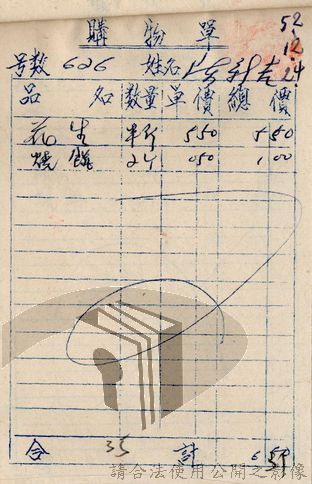 52.
購物單
12.
24
号数 626 姓名
品名 数量 单價 總價
花生 半斤 550 550
燒餅 2个 050 100
合 35 計 650
請合法使用公開之影像